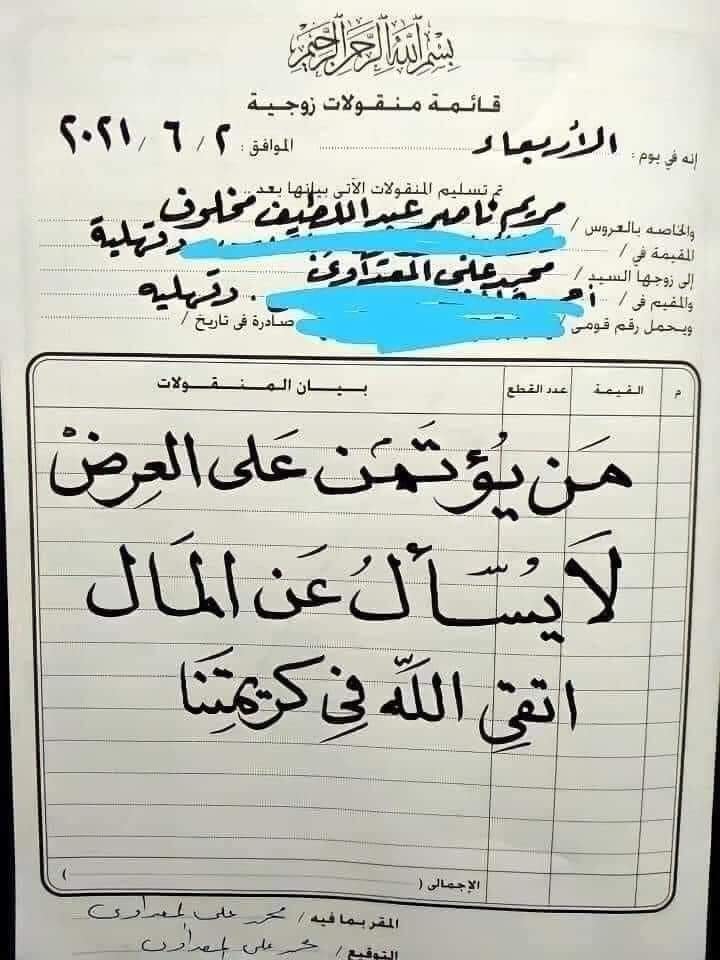 بسم الله الرحمن الرحيم
قائمة منقولات زوجية
إنه في يوم : الأربعاء الموافق : ٢ / ٦ / ٢٠٢١
تم تسليم المنقولات الآتى بيانها بعد ..
والخاصه بالعروس / مريم ناصر عبد اللطيف مخلوف
المقيمة في / دقهلية
إلى زوجها السيد / محمد على المعداوى
والمقيم فى / دقهليه
ويحمل رقم قومى / صادرة فى تاريخ /
م القيمة عدد القطع بيان المنقولات
مَن يُؤتَمَن عَلى العِرضْ
لَا يُسَّأَلُ عَن المَال
اتقِي اللَّه فِي كريمتِنَا
الإجمالى ( )
المقر بما فيه / محمد على المعداوى
التوقيع / محمد على المعداوى